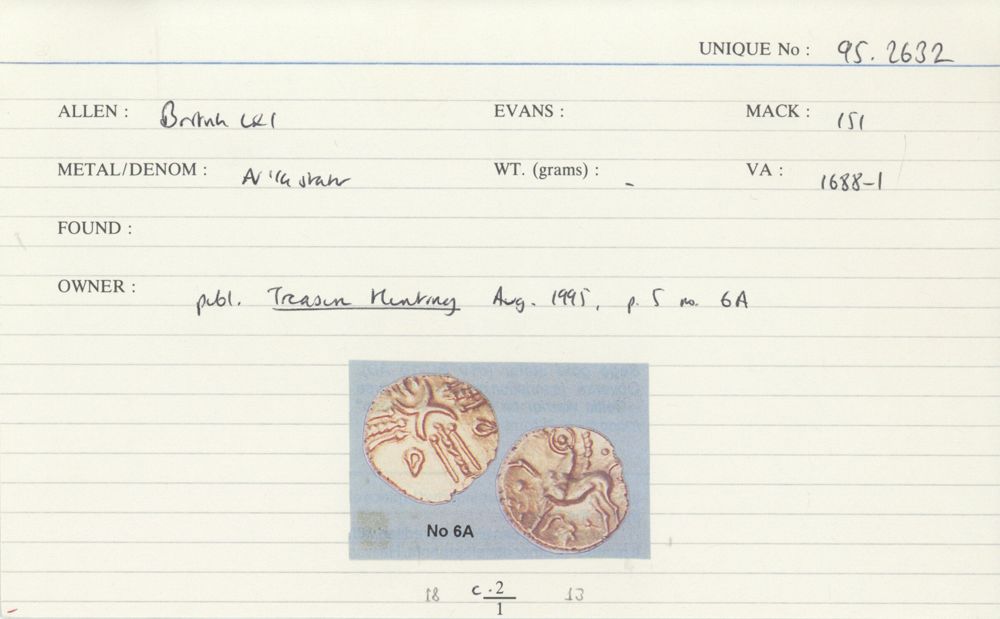 UNIQUE No : 95.2632
ALLEN : British LX1 EVANS : MACK : 151
METAL/DENOM : AV 1/4 stater WT. (grams) : - VA : 1688-1
FOUND :
OWNER : publ. Treasure Hunting Aug. 1995, p. 5 no. 6A
No 6A
18 c.2 13
1